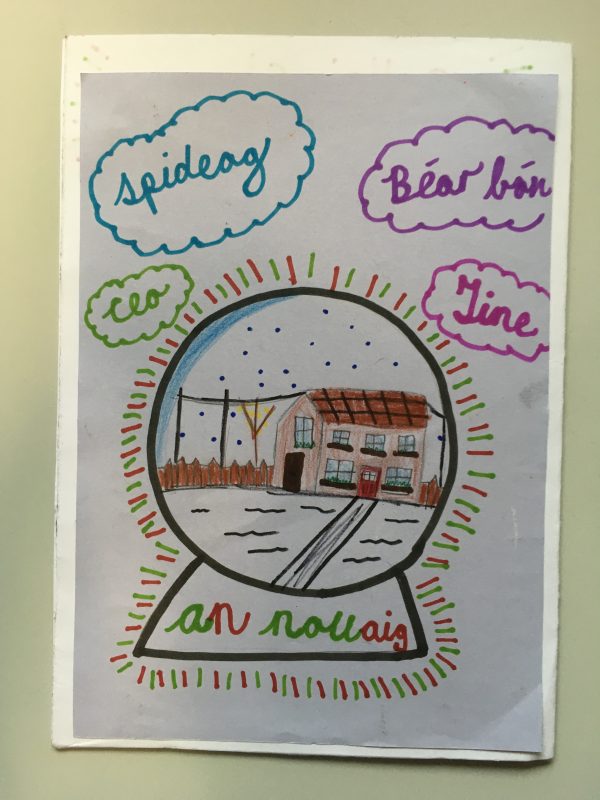 spideog
Béar bán
ceo
Tine
an nollaig